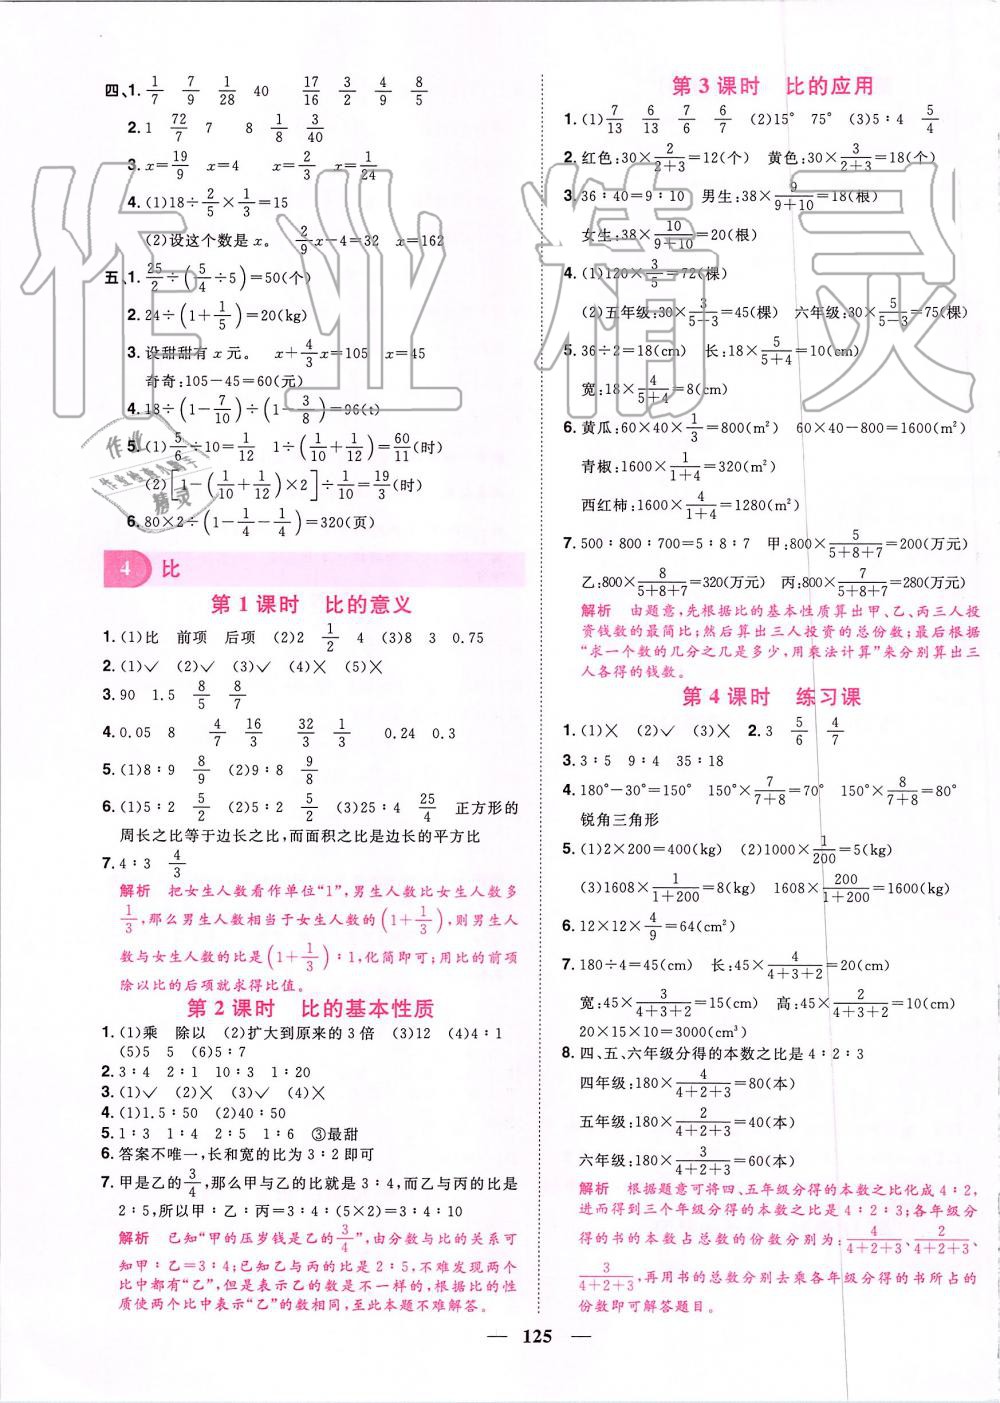 四、1. 1/7 7/9 1/28 40 17/16 3/2 4/9 8/5
2. 1 72/7 7 8 1/8 3/40
3. x=19/9 x=4 x=2/3 x=1/24
4. (1)18÷2/5×1/3=15
(2)设这个数是x。 2/9x-4=32 x=162
五、1. 25/2÷(5/4÷5)=50(个)
2. 24÷(1+1/5)=20(kg)
3. 设甜甜有x元。 x+4/3x=105 x=45
奇奇:105-45=60(元)
4. 18÷(1-7/10)÷(1-3/8)=96(t)
5. (1)5/6÷10=1/12 1÷(1/10+1/12)=60/11(时)
(2)[1-(1/10+1/12)×2]÷1/10=19/3(时)
6. 80×2÷(1-1/4-1/4)=320(页)
4 比
第1课时 比的意义
1. (1)比 前项 后项 (2)2 1/2 4 (3)8 3 0.75
2. (1)✓ (2)✓ (3)✓ (4)✓ (5)✓
3. 90 1.5 8/5 8/7
4. 0.05 8 4/7 16/3 32/3 1/3 0.24 0.3
5. (1)8∶9 8/9 (2)9∶8 9/8
6. (1)5∶2 5/2 (2)5∶2 5/2 (3)25∶4 25/4 正方形的
周长之比等于边长之比,而面积之比是边长的平方比
7. 4∶3 4/3
解析 把女生人数看作单位“1”,男生人数比女生人数多
1/3,那么男生人数相当于女生人数的(1+1/3),则男生人
数与女生人数的比是(1+1/3)∶1,化简即可;用比的前项
除以比的后项就求得比值。
第2课时 比的基本性质
1. (1)乘 除以 (2)扩大到原来的3倍 (3)12 (4)4∶1
(5)5 5 (6)5∶7
2. 3∶4 2∶1 10∶3 1∶20
3. (1)✓ (2)✕ (3)✓ (4)✕
4. (1)1.5∶50 (2)40∶50
5. 1∶3 1∶4 2∶5 1∶6 ③最甜
6. 答案不唯一,长和宽的比为3∶2即可
7. 甲是乙的3/4,那么甲与乙的比就是3∶4,而乙与丙的比是
2∶5,所以甲∶乙∶丙=3∶4∶(5×2)=3∶4∶10
解析 已知“甲的压岁钱是乙的3/4”,由分数与比的关系可
知甲∶乙=3∶4;已知乙与丙的比是2∶5,不难发现两个
比中都有“乙”,但是表示乙的数是不一样的,根据比的性
质使两个比中表示“乙”的数相同,至此本题不难解答。
第3课时 比的应用
1. (1)7/13 6/13 7/6 6/7 (2)15° 75° (3)5∶4 5/4
2. 红色:30×2/(2+3)=12(个) 黄色:30×3/(2+3)=18(个)
3. 36∶40=9∶10 男生:38×9/(9+10)=18(根)
女生:38×10/(9+10)=20(根)
4. (1)120×3/5=72(棵)
(2)五年级:30×3/(5-3)=45(棵) 六年级:30×5/(5-3)=75(棵)
5. 36÷2=18(cm) 长:18×5/(5+4)=10(cm)
宽:18×4/(5+4)=8(cm)
6. 黄瓜:60×40×1/3=800(m²) 60×40-800=1600(m²)
青椒:1600×1/(1+4)=320(m²)
西红柿:1600×4/(1+4)=1280(m²)
7. 500∶800∶700=5∶8∶7 甲:800×5/(5+8+7)=200(万元)
乙:800×8/(5+8+7)=320(万元) 丙:800×7/(5+8+7)=280(万元)
解析 由题意,先根据比的基本性质算出甲、乙、丙三人投
资钱数的最简比;然后算出三人投资的总份数;最后根据
“求一个数的几分之几是多少,用乘法计算”来分别算出三
人各得的钱数。
第4课时 练习课
1. (1)✕ (2)✓ (3)✕ 2. 3 5/6 4/7
3. 3∶5 9∶4 35∶18
4. 180°-30°=150° 150°×7/(7+8)=70° 150°×8/(7+8)=80°
锐角三角形
5. (1)2×200=400(kg) (2)1000×1/200=5(kg)
(3)1608×1/(1+200)=8(kg) 1608×200/(1+200)=1600(kg)
6. 12×12×4/9=64(cm²)
7. 180÷4=45(cm) 长:45×4/(4+3+2)=20(cm)
宽:45×3/(4+3+2)=15(cm) 高:45×2/(4+3+2)=10(cm)
20×15×10=3000(cm³)
8. 四、五、六年级分得的本数之比是4∶2∶3
四年级:180×4/(4+2+3)=80(本)
五年级:180×2/(4+2+3)=40(本)
六年级:180×3/(4+2+3)=60(本)
解析 根据题意可将四、五年级分得的本数之比化成4∶2,
进而得到三个年级分得的本数之比是4∶2∶3;各年级分
得的书的本数占总数的份数分别为:4/(4+2+3)、2/(4+2+3)、
3/(4+2+3),再用书的总数分别去乘各年级分得的书所占的
份数即可解答题目。
125
作业精灵
作业
作业检查小助手
精灵